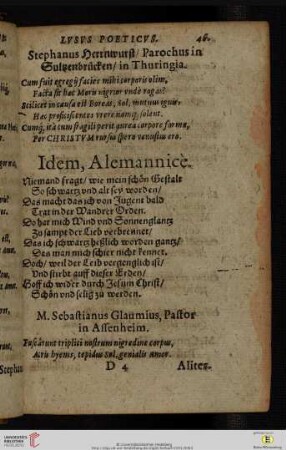 LVSVS POETICVS. 46.
Stephanus Herrnwurst/ Parochus in
Sultzenbrücken/ in Thuringia.
Cum fuit egregÿ facies mihi corporis olim,
Facta sit hac Mauris nigrior unde rogas?
Scilicet in causa est Boreas, Sol, motuus ignis:
Hac proficiscentes urere namq; solent.
Cumq; ita cum fragili perit aurea corpore forma,
Per CHRISTVM rursus spero venustus ero.
Idem, Alemannice.
Niemand fragt/ wie mein schön Gestalt
So schwartz vnd alt sey worden/
Das macht das ich von Jugent bald
Trat in der Wandrer Orden.
Do hat mich Wind vnd Sonnenglantz
Zu sampt der Lieb verbrennet/
Das ich schwartz heßlich worden gantz/
Das man mich schier nicht kennet.
Doch/ weil der Leib vergenglich ist/
Vnd stirbt auff dieser Erden/
Hoff ich wider durch Jesum Christ/
Schön vnd selig zu werden.
M. Sebastianus Glaumius, Pastor
in Assenheim.
Fuscârunt triplici nostrum nigredine corpus,
Acris hyems, tepidus Sol, genialis amor.
D 4 Alites.
UNIVERSITÄTS-
BIBLIOTHEK
HEIDELBERG
© Universitätsbibliothek Heidelberg
Baden-Württemberg